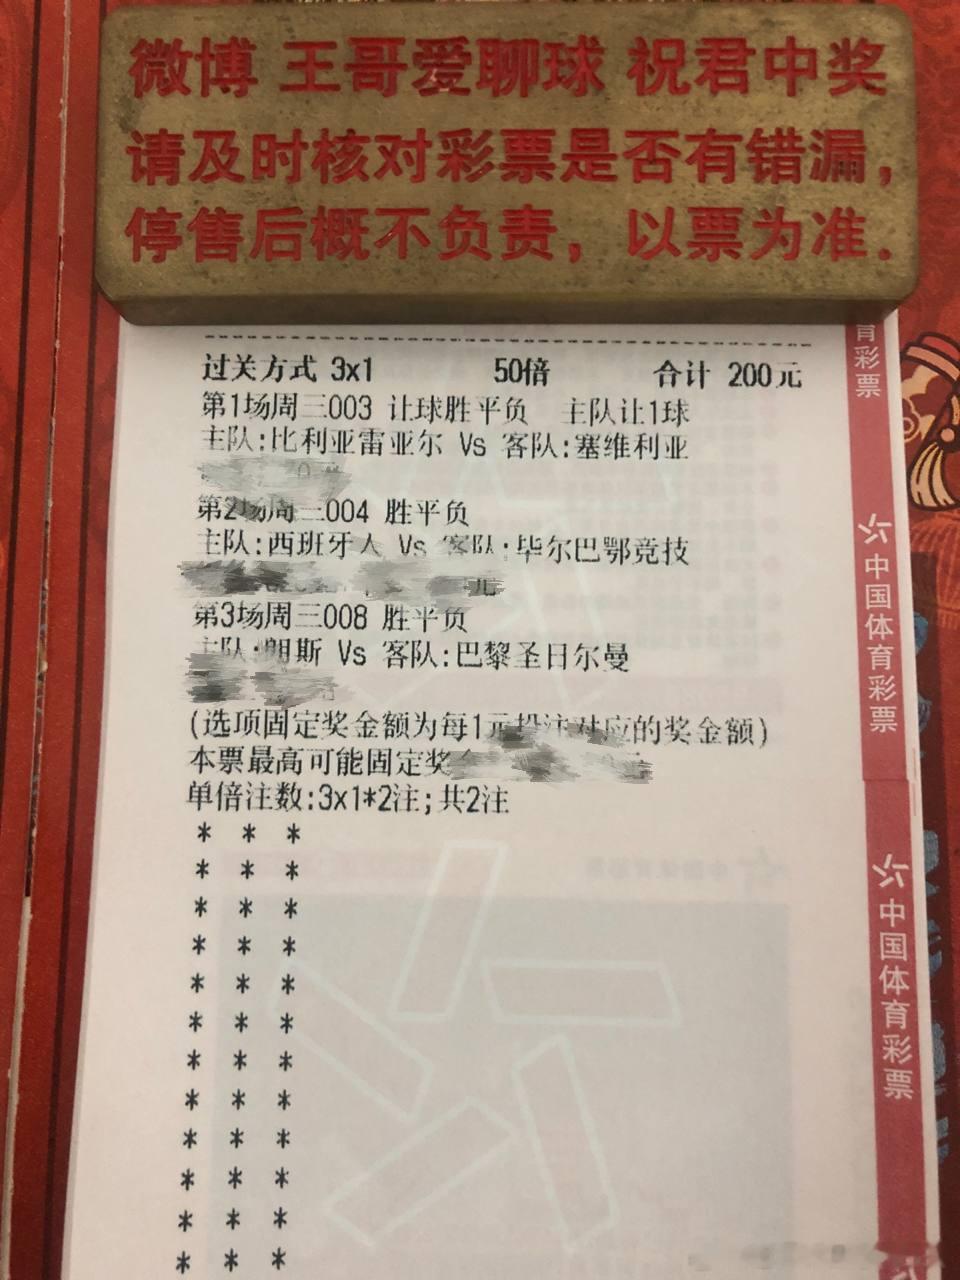 微博 王哥爱聊球 祝君中奖
请及时核对彩票是否有错漏，
停售后概不负责，以票为准.
过关方式 3x1 50倍 合计 200元
第1场周三003 让球胜平负 主队让1球
主队:比利亚雷亚尔 Vs 客队:塞维利亚
第2场周三004 胜平负
主队:西班牙人 Vs 客队:毕尔巴鄂竞技
元
第3场周三008 胜平负
主队:朗斯 Vs 客队:巴黎圣日尔曼
(选项固定奖金额为每1元投注对应的奖金额)
本票最高可能固定奖
单倍注数:3x1*2注;共2注
* * *
* * *
* * *
* * *
* * *
* * *
* * *
* * *
* * *
* * *
* * *
* * *
育彩票
中国体育彩票
中国体育彩票